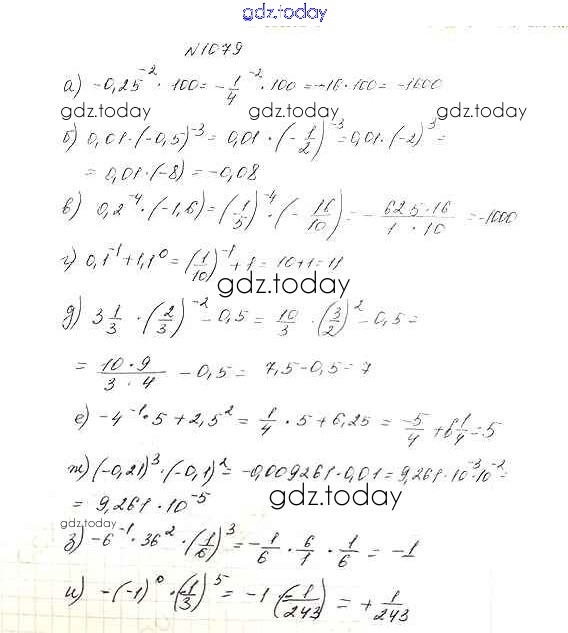 gdz.today
№1079
а) -0,25⁻² · 100 = -1/4⁻² · 100 = -16 · 100 = -1600
gdz.today gdz.today gdz.today
б) 0,01 · (-0,5)⁻³ = 0,01 · (-1/2)⁻³ = 0,01 · (-2)³ =
= 0,01 · (-8) = -0,08
в) 0,2⁻⁴ · (-1,6) = (1/5)⁻⁴ · (-16/10) = - 625·16/1·10 = -1000
г) 0,1⁻¹ + 1,1⁰ = (1/10)⁻¹ + 1 = 10+1 = 11
gdz.today
д) 3 1/3 · (2/3)⁻² - 0,5 = 10/3 · (3/2)² - 0,5 =
= 10·9/3·4 - 0,5 = 7,5 - 0,5 = 7
е) -4⁻¹ · 5 + 2,5² = 1/4 · 5 + 6,25 = -5/4 + 6 1/4 = 5
ж) (-0,21)³ · (-0,1)² = -0,009261 · 0,01 = 9,261 · 10⁻³ · 10⁻² =
= 9,261 · 10⁻⁵
gdz.today
gdz.today
з) -6⁻¹ · 36² · (1/6)³ = -1/6 · 6/1 · 1/6 = -1
и) -(-1)⁰ · (-1/3)⁵ = -1 · (-1/243) = + 1/243